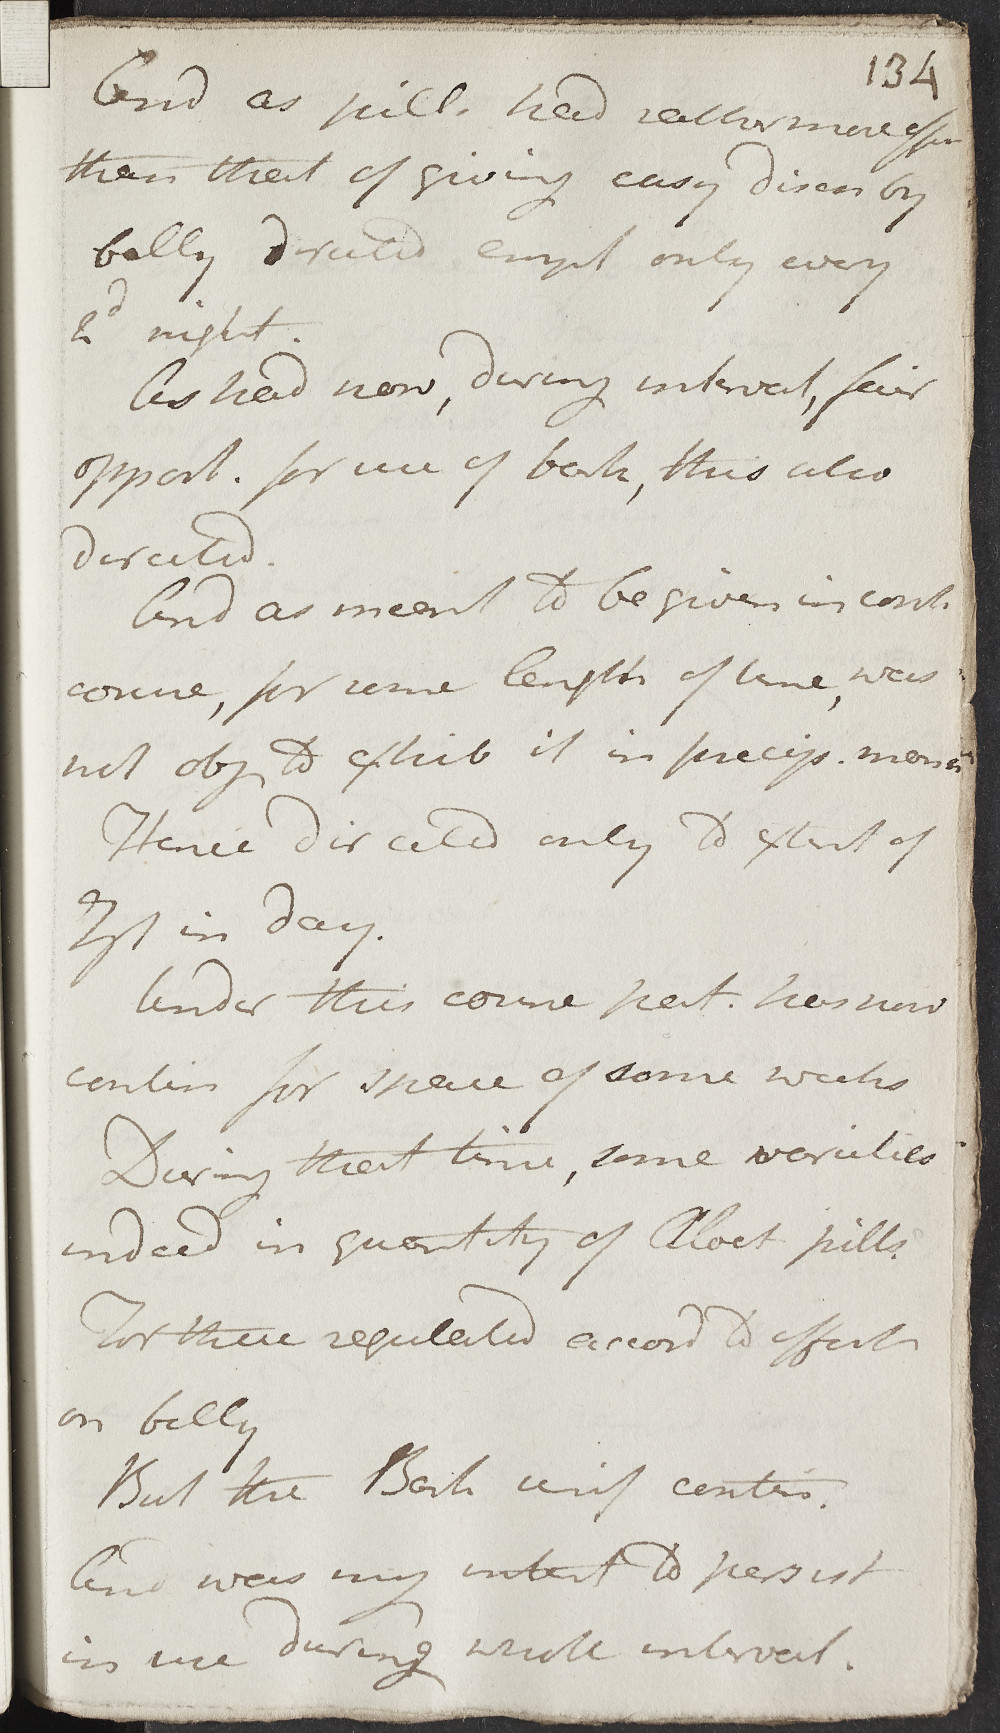 134
And as pills had rather more effec
than that of giving easy disch by
belly directed empl only every
2d night.
As had now, during interval, fair
opport. for use of bark, this also
directed.
And as meant to be given in cont
course, for some length of time, was
not obj to exhib it in precip. mann
Hence directed only to extent of
ʒfs in day.
Under this course pat. has now
contin for space of some weeks
During that time, some varieties
indeed in quantity of Aloet pills.
For these regulated accord to effects
on belly
But the Bark unif contin.
And was my intent to persist
in use during whole interval.